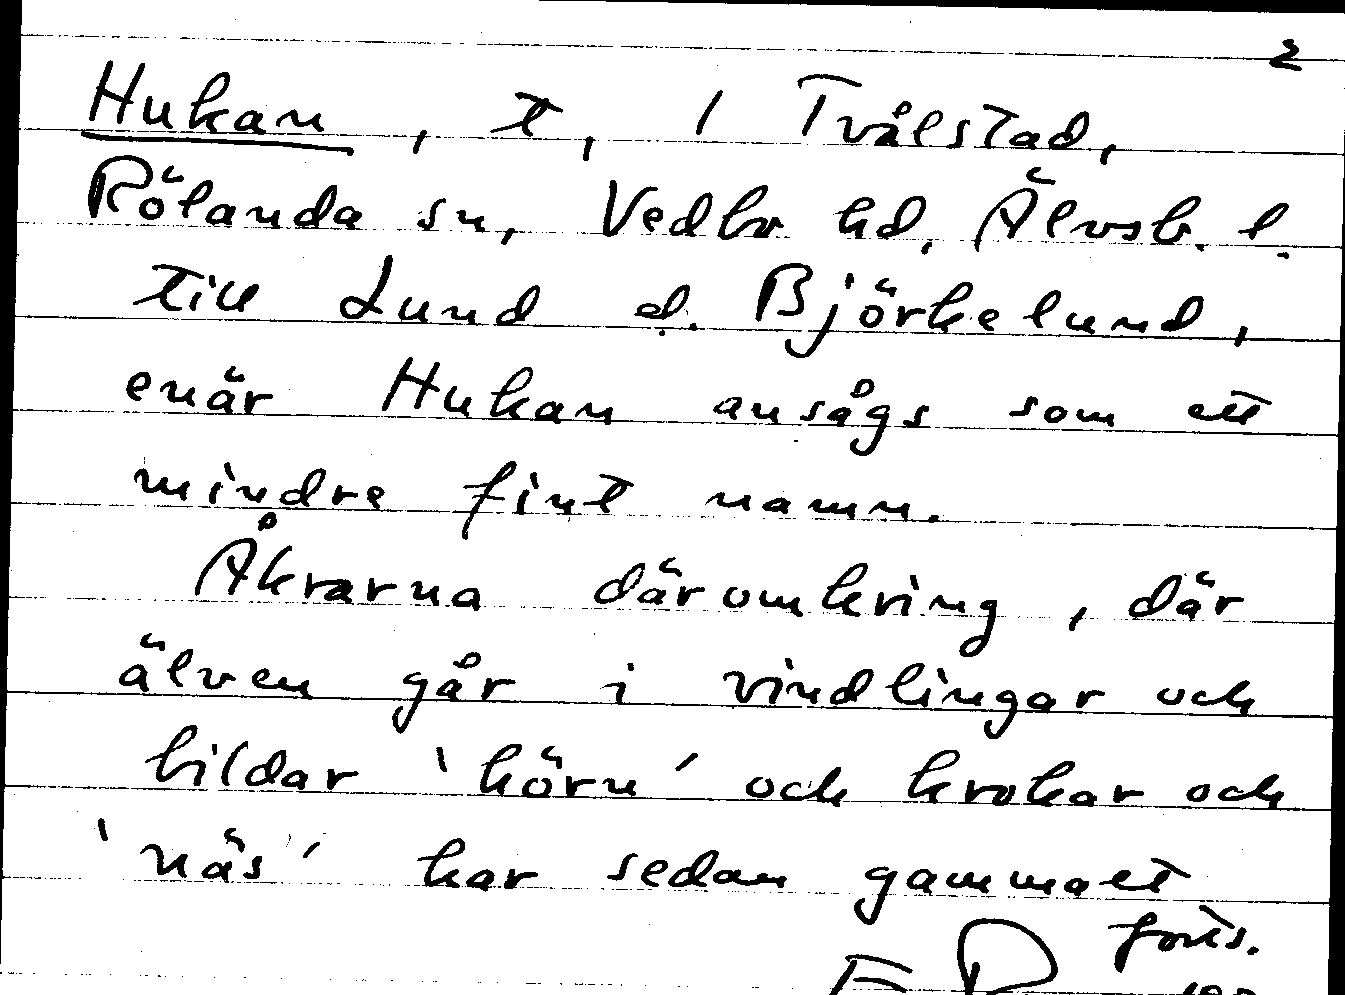 2
Hukan, t, / Tvålstad,
Rölanda sn, Vedbo hd, Älvsb. l.
till Lund el. Björkelund,
enär Hukan ansågs som ett
mindre fint namn.
Åkrarna däromkring, där
älven går i vindlingar och
bildar 'hörn' och krokar och
'näs' har sedan gammalt
forts.